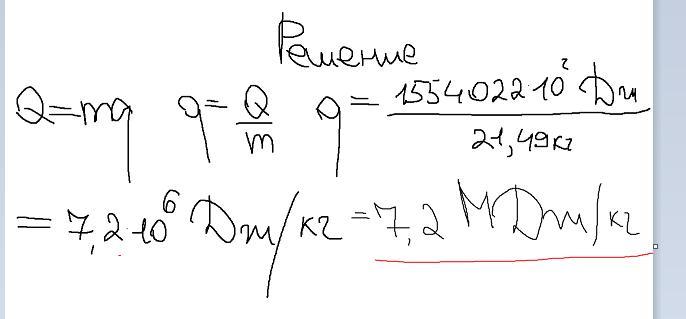 Решение
Q=mq q=Q/m q=1554022·10² Дж/21,49кг
=7,2·10⁶ Дж/кг=7,2 МДж/кг